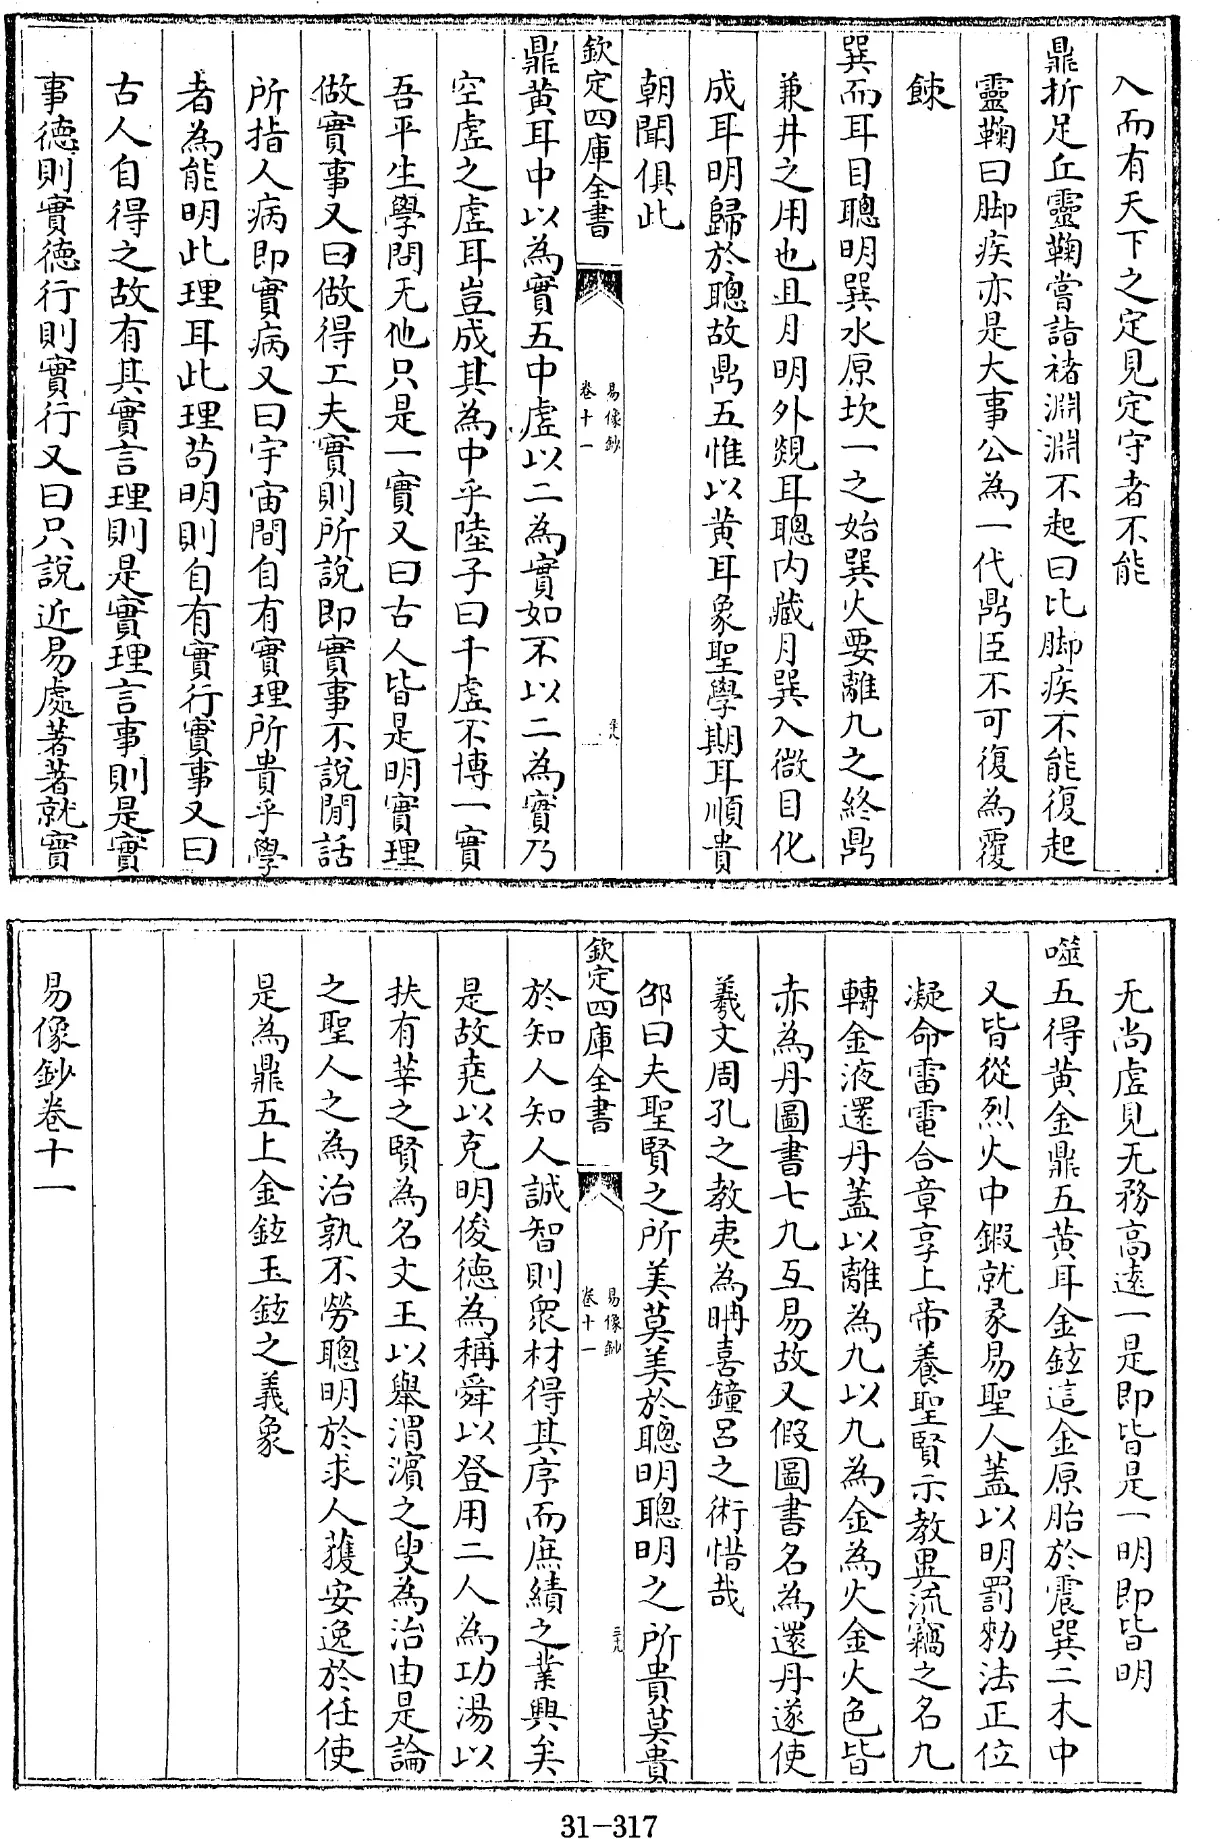 入而有天下之定見定守者不能
鼎折足丘靈鞠嘗詣褚淵淵不起曰比脚疾不能復起
靈鞠曰脚疾亦是大事公為一代鼎臣不可復為覆
餗
巽而耳目聰明巽水原坎一之始巽火要離九之終鼎
兼井之用也且月明外覜耳聰内藏月巽入微目化
成耳明歸於聰故鼎五惟以黄耳象聖學期耳順貴
朝聞俱此
欽定四庫全書
易像鈔
卷十一
鼎黄耳中以為實五中虛以二為實如不以二為實乃
空虛之虛耳豈成其為中乎陸子曰千虛不博一實
吾平生學問无他只是一實又曰古人皆是明實理
做實事又曰做得工夫實則所說即實事不說閒話
所指人病即實病又曰宇宙間自有實理所貴乎學
者為能明此理耳此理苟明則自有實行實事又曰
古人自得之故有其實言理則是實理言事則是實
事德則實德行則實行又曰只說近易處著著就實
无尚虛見无務高遠一是即皆是一明即皆明
噬五得黄金鼎五黄耳金鉉這金原胎於震巽二木中
又皆從烈火中鍜就彖易聖人蓋以明罰勑法正位
凝命雷電合章享上帝養聖賢示教異流竊之名九
轉金液還丹蓋以離為九以九為金為火金火色皆
赤為丹圖書七九互易故又假圖書名為還丹遂使
羲文周孔之教夷為聃喜鐘呂之術惜哉
邵曰夫聖賢之所美莫美於聰明聰明之所貴莫貴
欽定四庫全書
易像鈔
卷十一
三十九
於知人知人誠智則衆材得其序而庶績之業興矣
是故堯以克明俊德為稱舜以登用二人為功湯以
扶有莘之賢為名文王以舉渭濱之叟為治由是論
之聖人之為治孰不勞聰明於求人獲安逸於任使
是為鼎五上金鉉玉鉉之義象
易像鈔卷十一
31-317